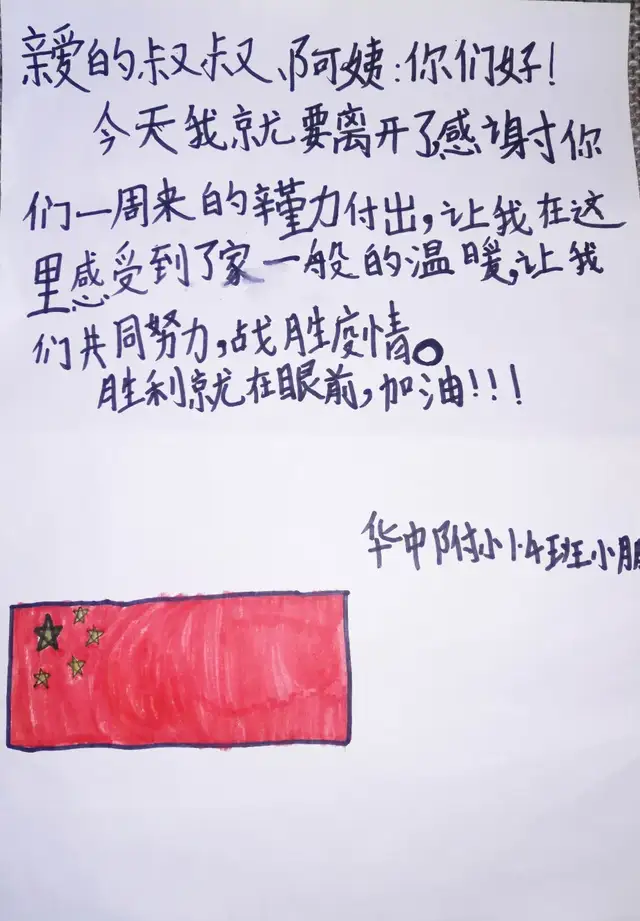 亲爱的叔叔、阿姨:你们好!
今天我就要离开了感谢你
们一周来的辛勤付出,让我在这
里感受到了家一般的温暖,让我
们共同努力,战胜疫情。
胜利就在眼前,加油!!!
华中附小1.4班小朋